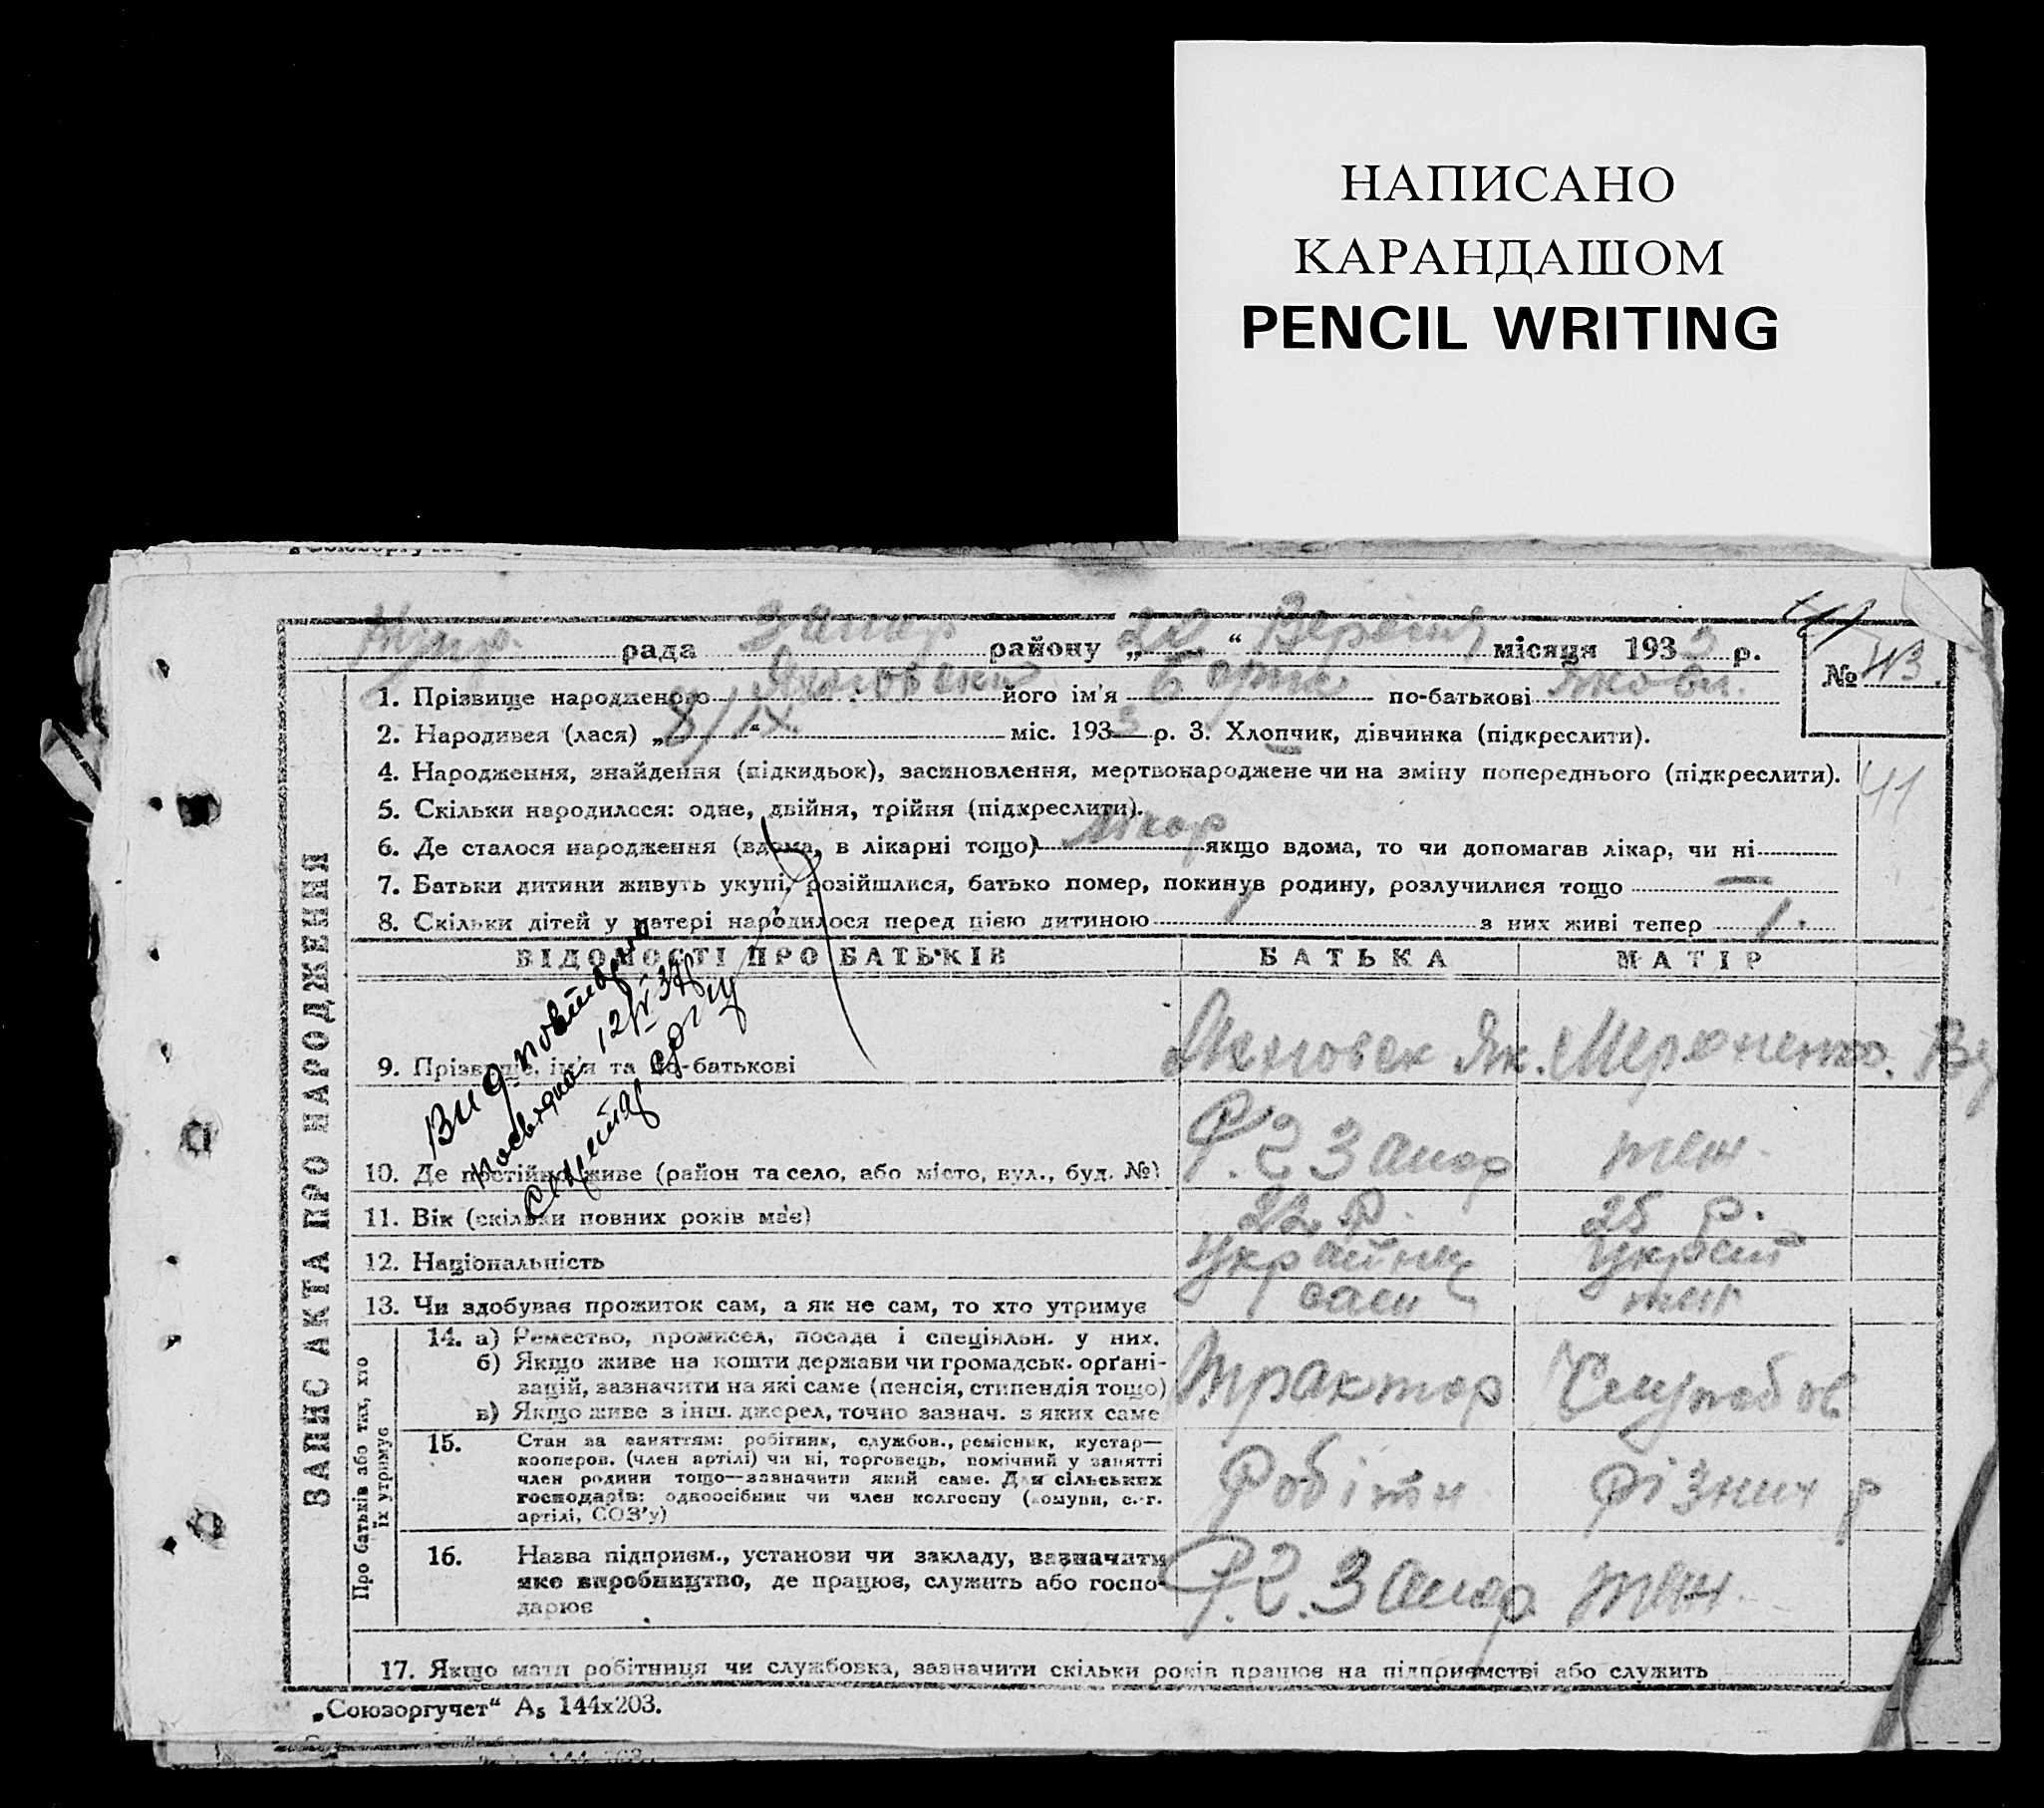 НАПИСАНО
КАРАНДАШОМ
PENCIL WRITING
рада Запор району „22“ Вересня місяця 1933 р.
№ 43.
1. Прізвище народженого Яхновски його ім'я Борис по-батькові Якови.
2. Народився (лася) „8/IX“ міс. 1933 р. 3. Хлопчик, дівчинка (підкреслити).
4. Народження, знайдення (підкидьок), засиновлення, мертвонароджене чи на зміну попереднього (підкреслити).
41
5. Скільки народилося: одне, двійня, трійня (підкреслити).
6. Де сталося народження (вдома, в лікарні тощо) лікар якщо вдома, то чи допомагав лікар, чи ні
7. Батьки дитини живуть укупі, розійшлися, батько помер, покинув родину, розлучилися тощо —
8. Скільки дітей у матері народилося перед цією дитиною 1 з них живі тепер 1.
ЗАПИС АКТА ПРО НАРОДЖЕННЯ
ВІДОМОСТІ ПРО БАТЬКІВ БАТЬКА МАТІР
9. Прізвище, ім'я та по-батькові Як.
10. Де постійно живе (район та село, або місто, вул., буд. №) Р. 2 Запор теж.
11. Вік (скільки повних років має) 22 р. 25 р.
12. Національність Українец Украін
13. Чи здобуває прожиток сам, а як не сам, то хто утримує сам теж
Про батьків або тих, хто їх утримує
14. а) Ремество, промисел, посада і спеціяльн. у них.
б) Якщо живе на кошти держави чи громадськ. орґані-
зацій, зазначити на які саме (пенсія, стипендія тощо) Трактор Службов
в) Якщо живе з інш. джерел, точно зазнач. з яких саме
15. Стан за заняттям: робітник, службов., ремісник, кустар—
кооперов. (член артілі) чи ні, торговець, помічний у занятті
член родини тощо—зазначити який саме. Для сільських Робітн різних р
господарів: одноосібник чи член колгоспу (комуни, с.-г.
артілі, СОЗ'у)
16. Назва підприєм., установи чи закладу, зазначити
яке виробництво, де працює, служить або госпо- Р. 2. Запор теж.
дарює
17. Якщо мати робітниця чи службовка, зазначити скільки років працює на підприємстві або служить
„Союзоргучет“ А₅ 144х203.